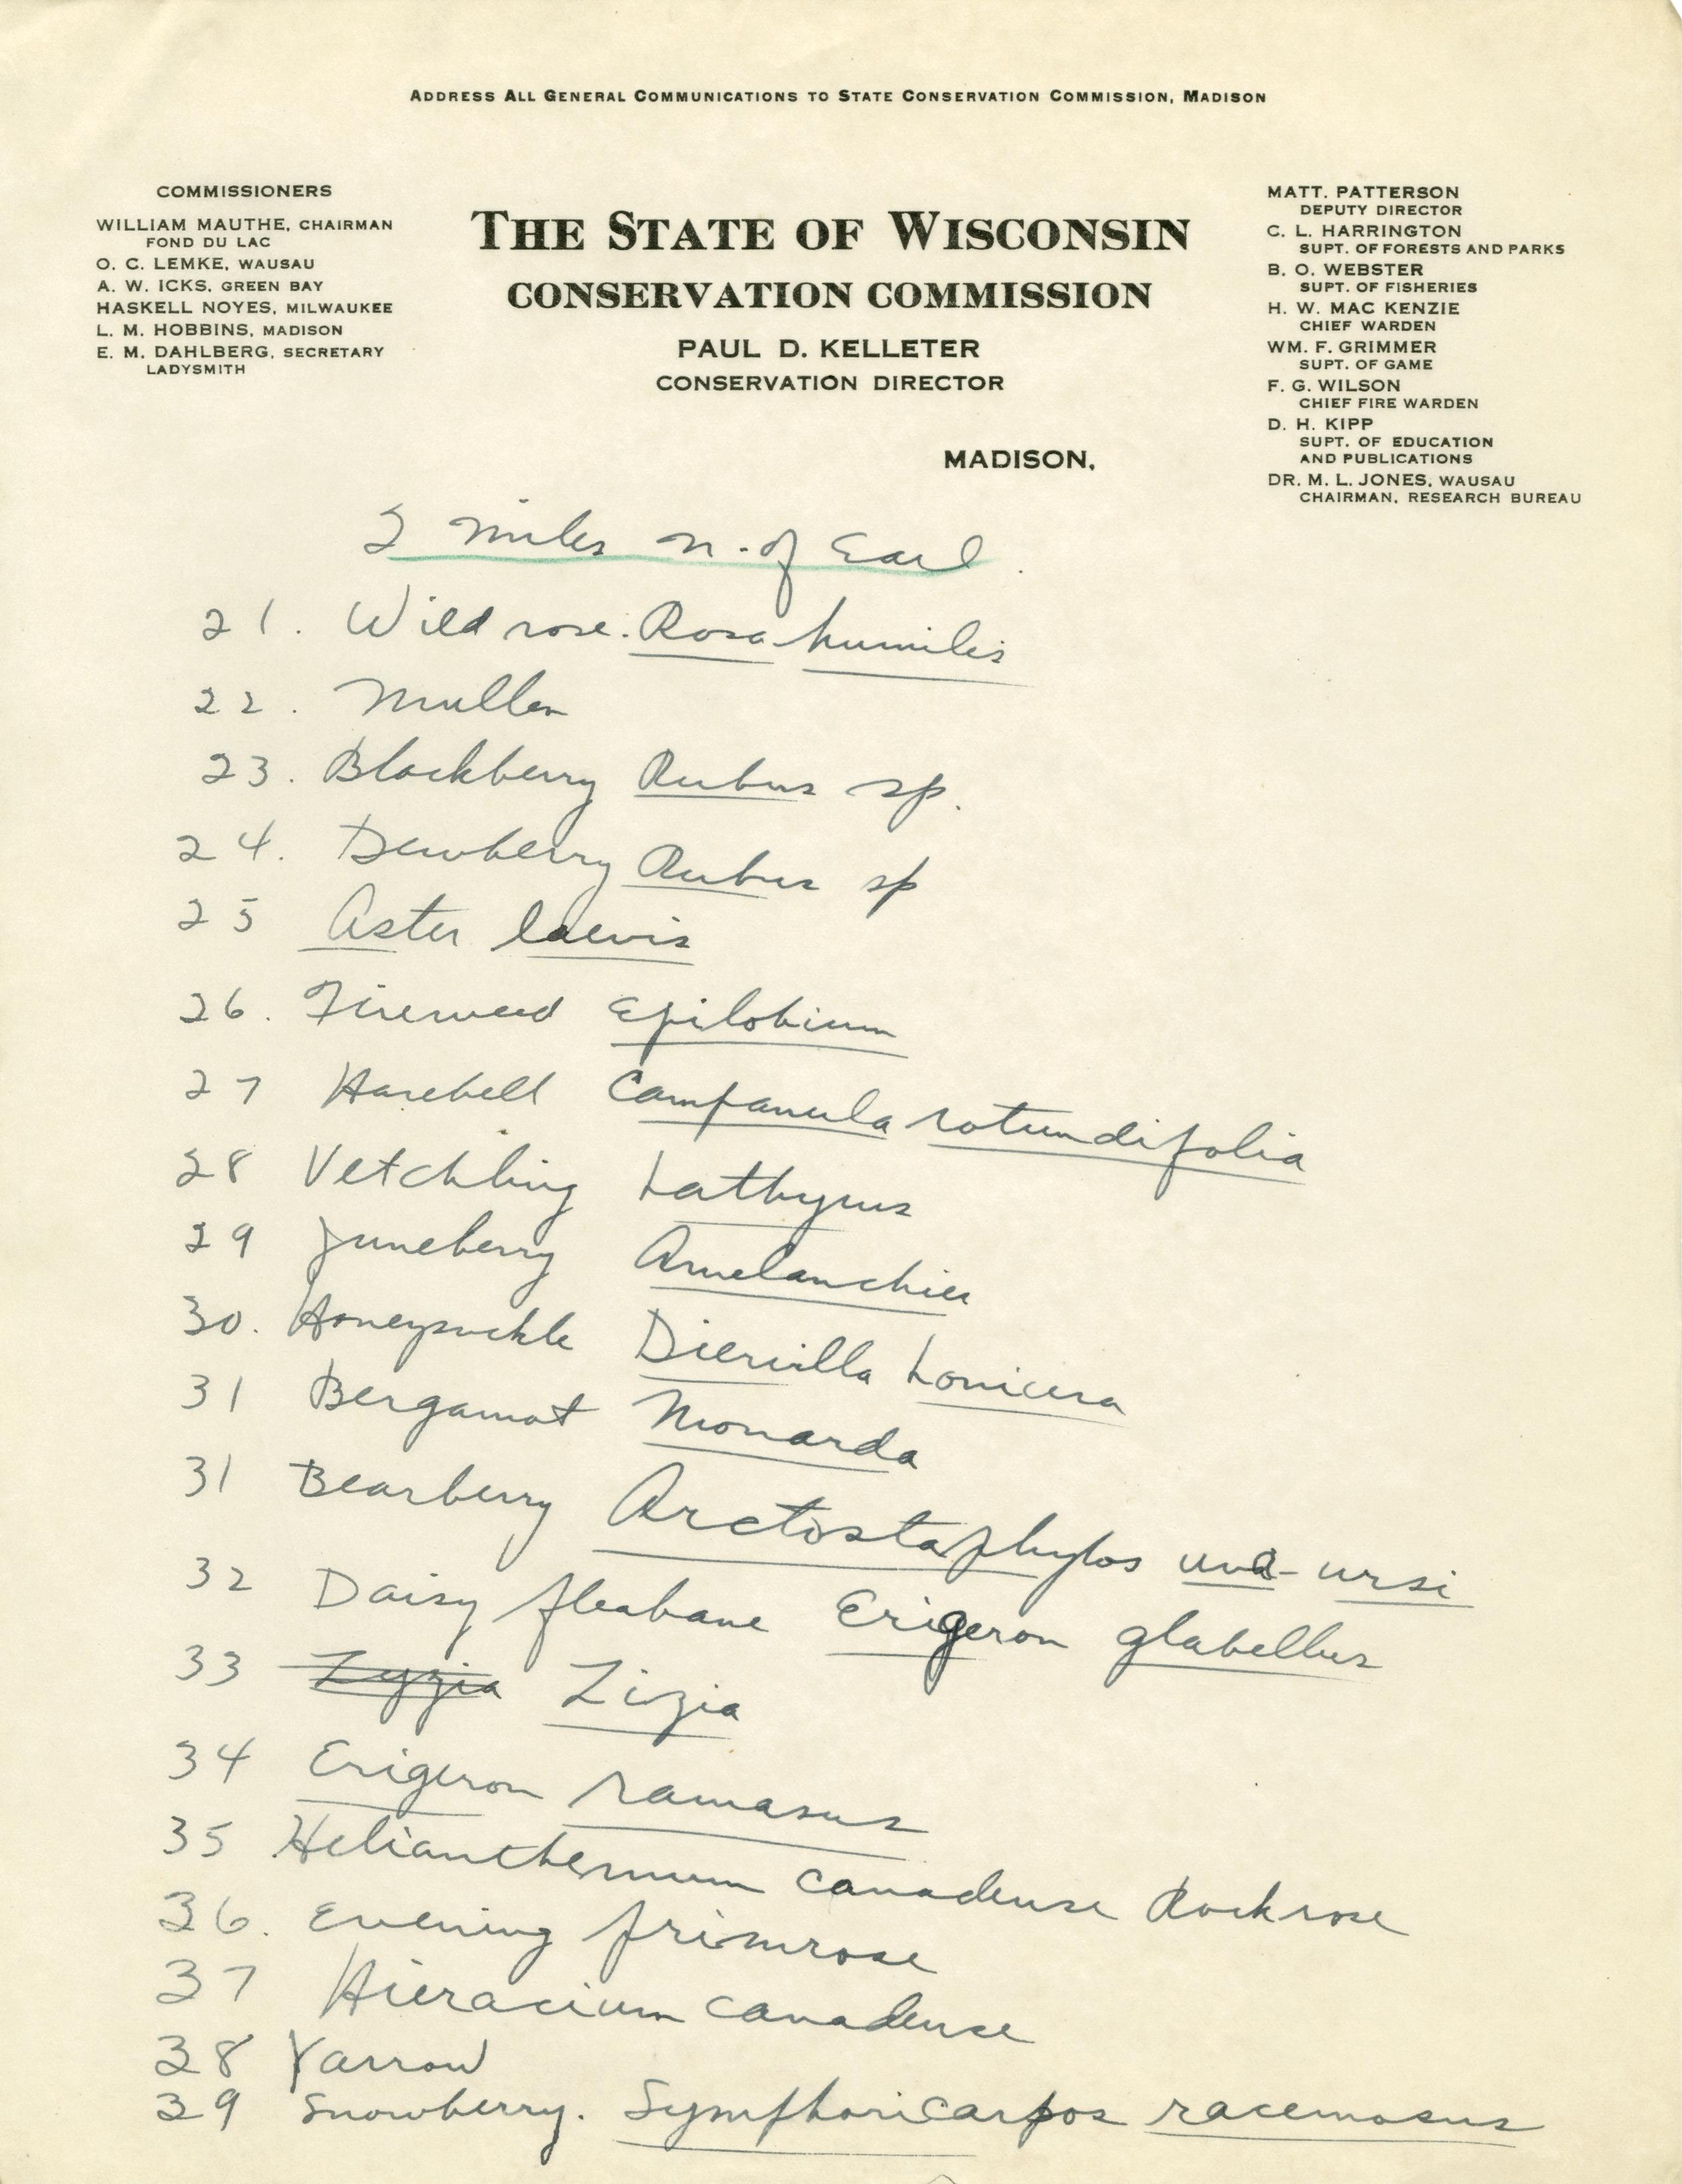 ADDRESS ALL GENERAL COMMUNICATIONS TO STATE CONSERVATION COMMISSION, MADISON
COMMISSIONERS
WILLIAM MAUTHE, CHAIRMAN
FOND DU LAC
O. C. LEMKE, WAUSAU
A. W. ICKS, GREEN BAY
HASKELL NOYES, MILWAUKEE
L. M. HOBBINS, MADISON
E. M. DAHLBERG, SECRETARY
LADYSMITH
THE STATE OF WISCONSIN
CONSERVATION COMMISSION
PAUL D. KELLETER
CONSERVATION DIRECTOR
MADISON,
MATT. PATTERSON
DEPUTY DIRECTOR
C. L. HARRINGTON
SUPT. OF FORESTS AND PARKS
B. O. WEBSTER
SUPT. OF FISHERIES
H. W. MAC KENZIE
CHIEF WARDEN
WM. F. GRIMMER
SUPT. OF GAME
F. G. WILSON
CHIEF FIRE WARDEN
D. H. KIPP
SUPT. OF EDUCATION
AND PUBLICATIONS
DR. M. L. JONES, WAUSAU
CHAIRMAN, RESEARCH BUREAU
2 miles n. of Earl.
21. Wild rose. Rosa humilis
22. Mullen
23. Blackberry Rubus sp.
24. Dewberry Rubus sp
25 Aster laevis
26. Fireweed Epilobium
27 Harebell Campanula rotundifolia
28 Vetchling Lathyrus
29 Juneberry Amelanchier
30. Honeysuckle Diervilla Lonicera
31 Bergamot Monarda
31 Bearberry Arctostaphylos uva-ursi
32 Daisy fleabane Erigeron glabellus
33 Zyzia Zizia
34 Erigeron ramasus
35 Helianthemum canadense Rockrose
36. Evening primrose
37 Hieracium canadense
38 Yarrow
39 Snowberry. Symphoricarpos racemosus